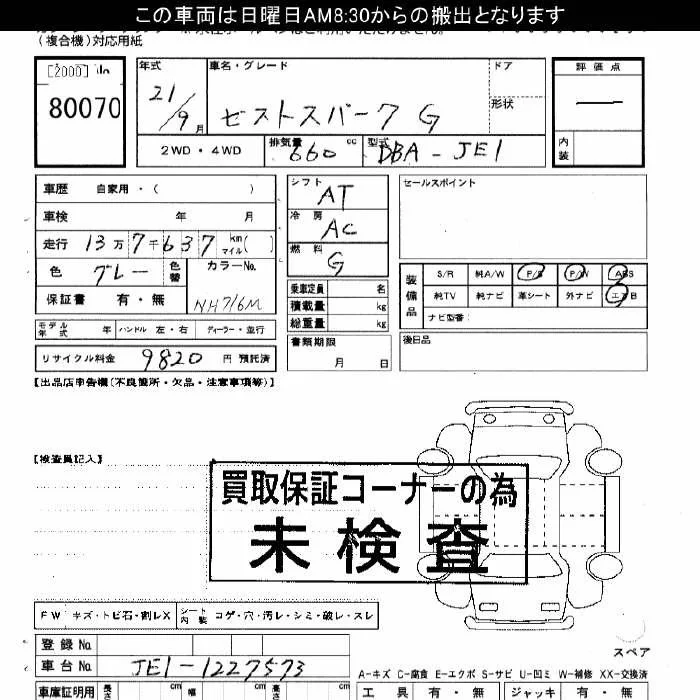 この車両は日曜日AM8:30からの搬出となります
(複合機)対応用紙
[2000] No
80070
年式
21/9月
車名・グレード
ゼストスパーク G
ドア
形状
評価点
—
内装
2WD・4WD
排気量 660 cc
型式 DBA-JE1
車歴 自家用・( )
車検 年 月
走行 13万7千637 km マイル( )
色 グレー 色替
カラーNo.
NH716M
保証書 有・無
シフト AT
冷房 AC
燃料 G
乗車定員 名
積載量 kg
総重量 kg
セールスポイント
装備品
S/R 純A/W P/S P/W ABS
純TV 純ナビ 革シート 外ナビ エアB
ナビ型番:
モデル年式 年 ハンドル 左・右 ディーラー・並行
書類期限
月 日
後日品
リサイクル料金 9820 円 預託済
【出品店申告欄(不良箇所・欠品・注意事項等)】
【検査員記入】
買取保証コーナーの為
未検査
FW キズ・トビ石・割レX
シート内装 コゲ・穴・汚レ・シミ・破レ・スレ
登録No.
車台No. JE1-1227573
スペア
A-キズ C-腐食 E-エクボ S-サビ U-凹ミ W-補修 XX-交換済
車庫証明用 長さ cm 幅 cm 高さ cm
工具 有・無 ジャッキ 有・無